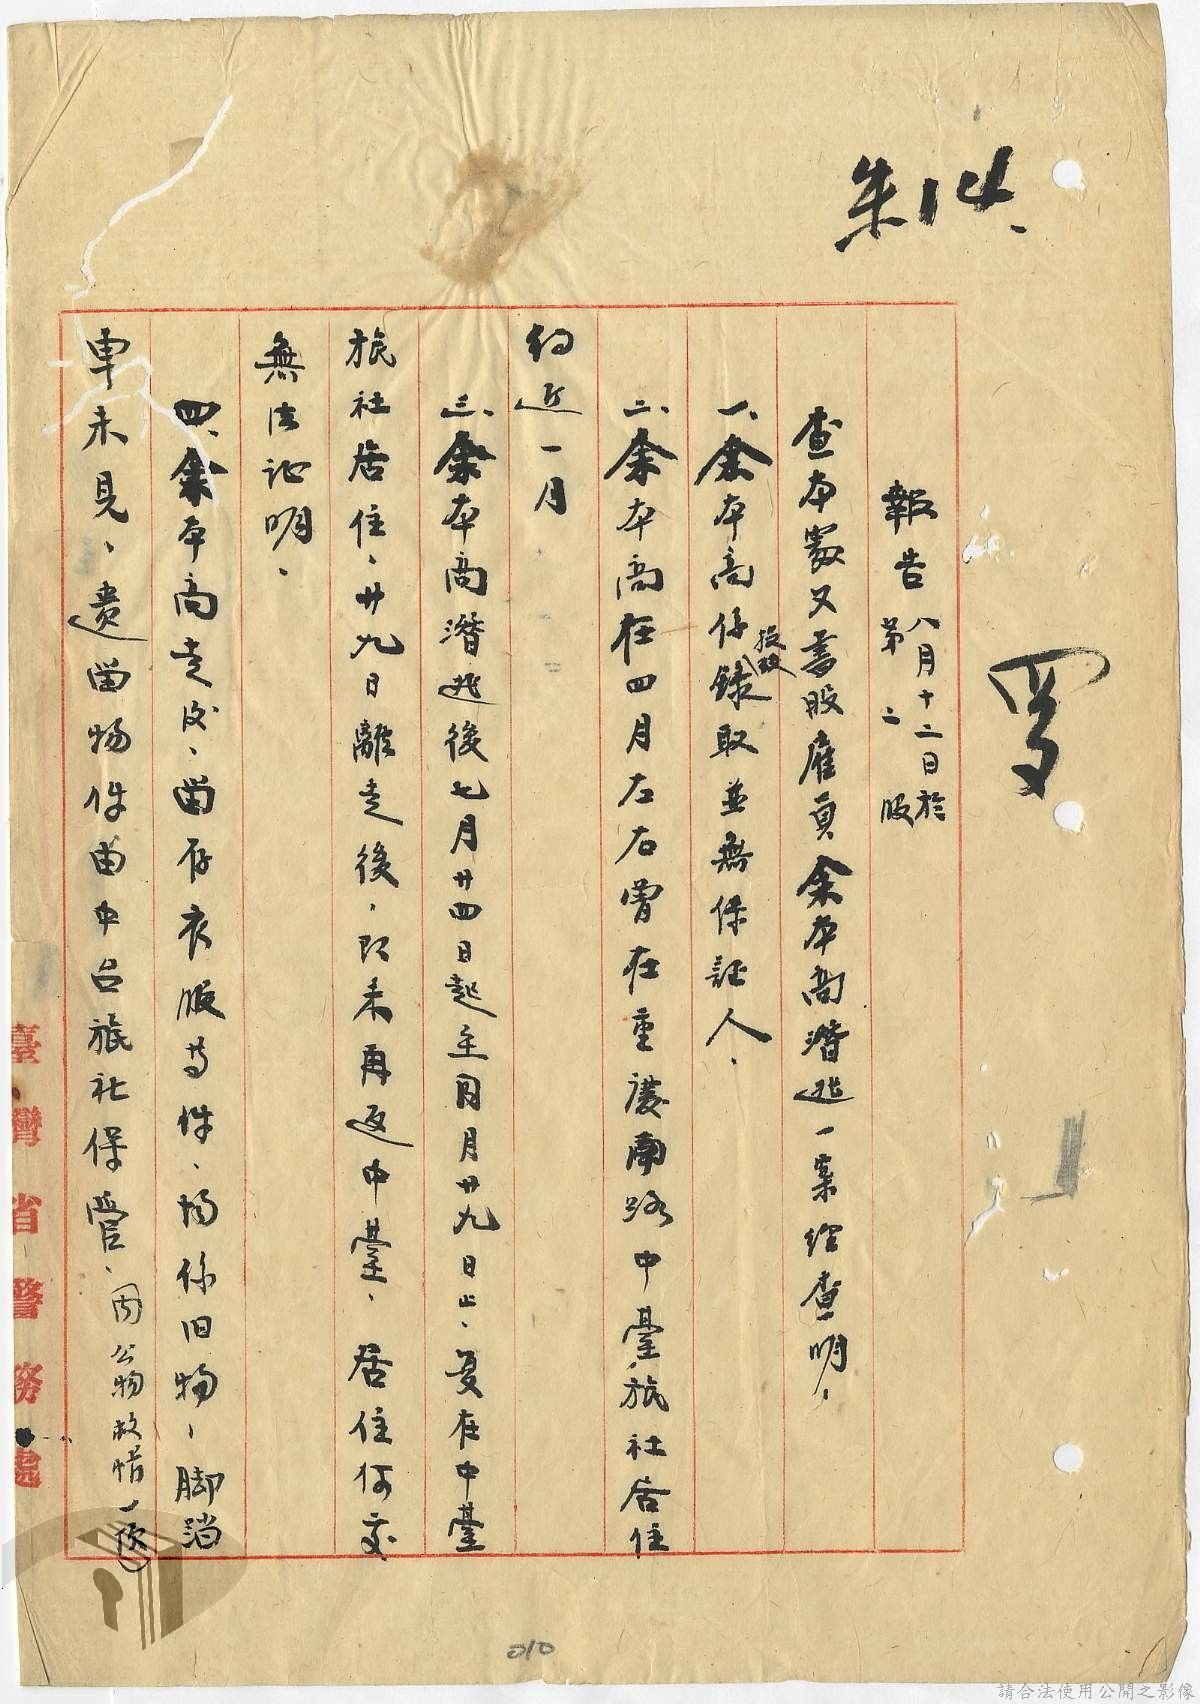 朱14.
報告 八月十二日於
第二股
查本處文書股雇員余本高潛逃一案經查明、
一、余本高係投効錄取並無保証人、
二、余本高在四月左右曾在重慶南路中臺旅社居住
約近一月
三、余本高潛逃後七月廿四日起至同月廿九日止、复在中臺
旅社居住、廿九日離走後、即未再返中臺、居住何處
無法証明、
四、余本高走後、留存衣服等件、均係旧物、脚踏
車未見、遺留物件由中台旅社保管、因公物故惜一
臺灣省警務處
010
請合法使用公開之影像